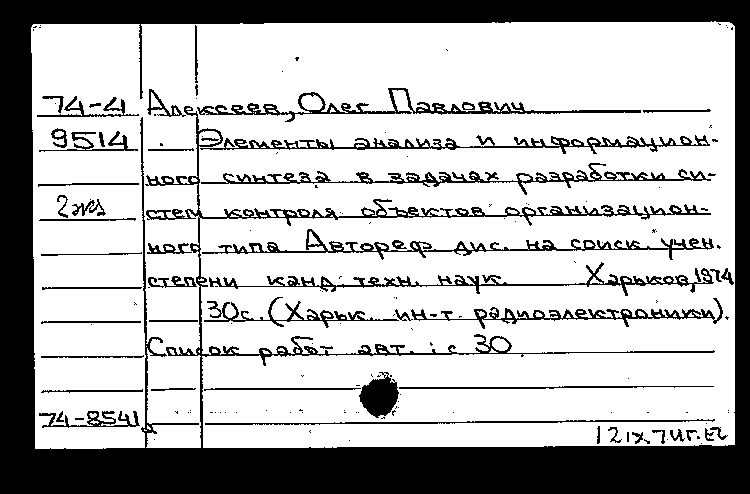 74-4 Алексеев, Олег Павлович
9514 . Элементы анализа и информацион-
ного синтеза в задачах разработки си-
2 экз стем контроля объектов организацион-
ного типа. Автореф. дис. на соиск. учен.
степени канд. техн. наук. Харьков, 1974
30с. (Харьк. ин-т. радиоэлектроники).
Список работ авт.: с 30
74-8541